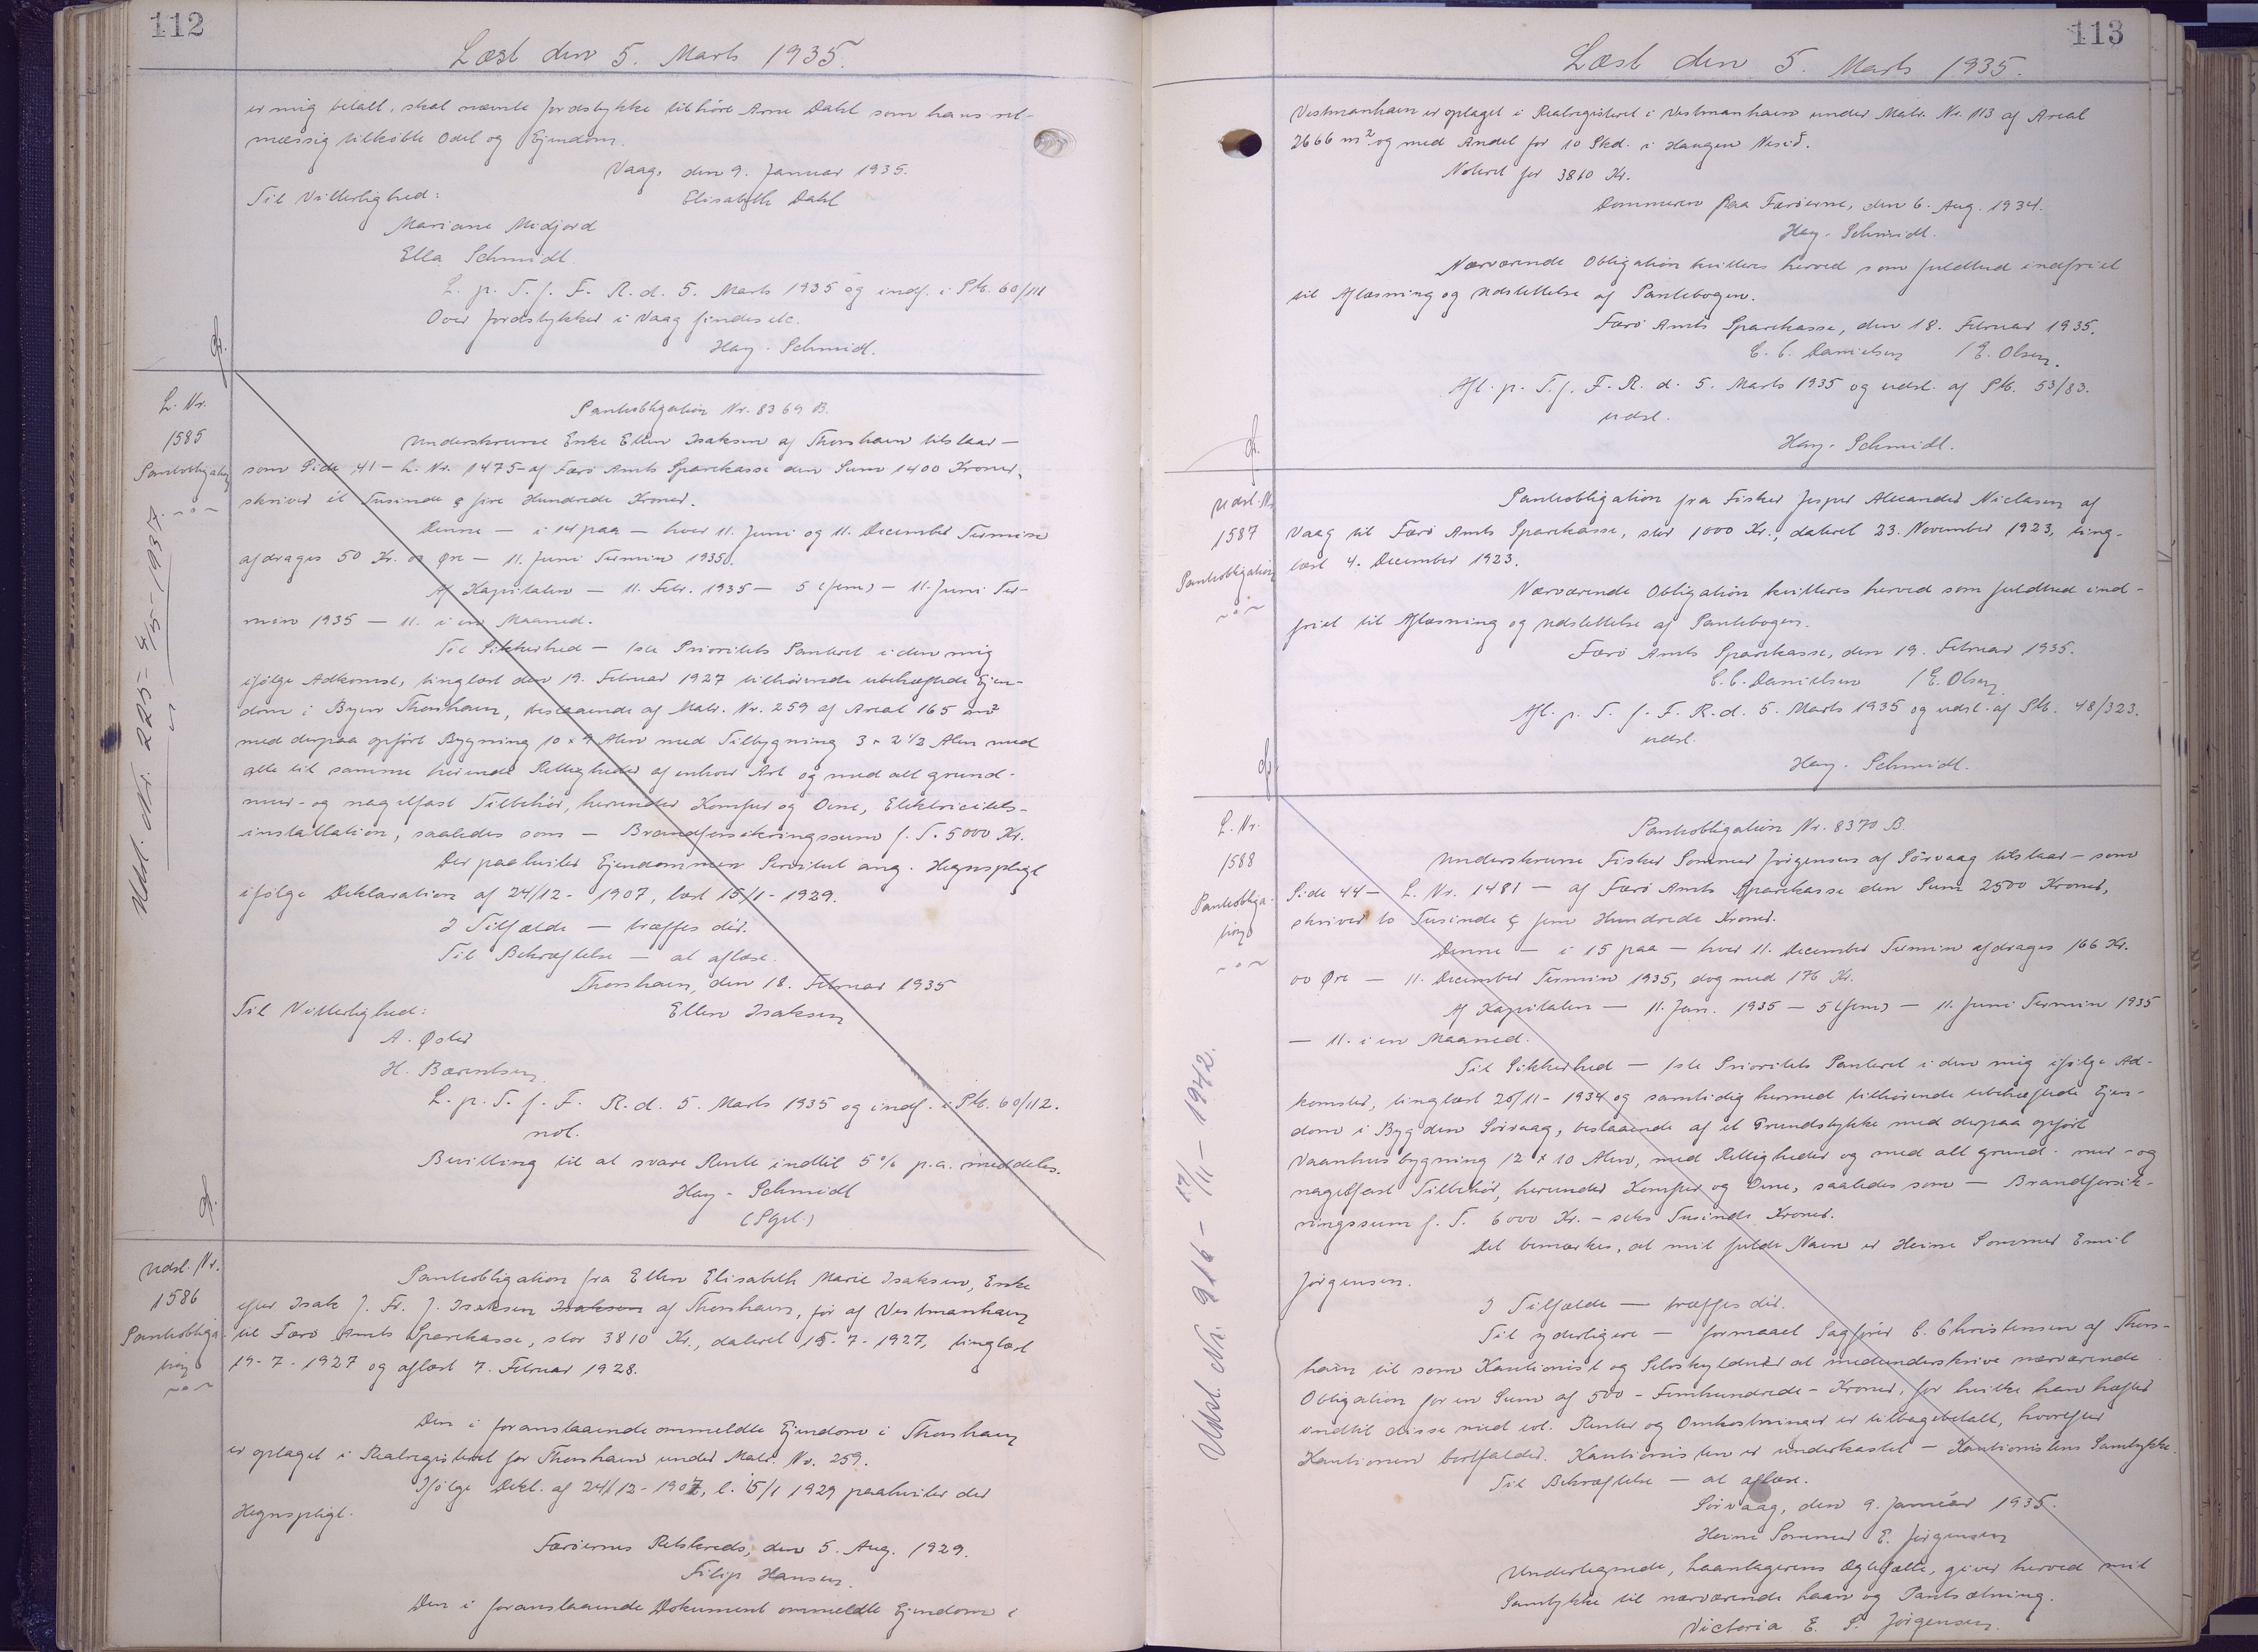 112
Læst den 5. Marts 1935.
er mig betalt, skal nævnte Jordstykke tilhöre Arne Dahl som hans ret-
mæssig tilköbte Odel og Ejendom.
Vaag, den 9. Januar 1935.
Til Vitterlighed: Elisabeth Dahl
Mariane Midjord
Ella Schmidt.
L. p. T. f. F. R. d. 5. Marts 1935 og indf. i Ptb. 60/111
Over Jordstykker i Vaag findes etc.
Hay-Schmidt.
L. Nr.
1585
Pantobligation
~o~
Udsl. Nr. 225- 5/5-1937.
Pantobligation Nr. 8369 B.
Underskrevne Enke Ellen Isaksen af Thorshavn tilstaar —
som Side 41 — L. Nr. 1475 — af Færö Amts Sparekasse den Sum 1400 Kroner,
skriver ét Tusinde & fire Hundrede Kroner.
Denne — i 14 paa — hver 11. Juni og 11. December Termin
afdrages 50 Kr. 00 Øre — 11. Juni Termin 1935.
Af Kapitalen — 11. Febr. 1935 — 5 (fem) — 11. Juni Ter-
min 1935 — 11. i en Maaned.
Til Sikkerhed — 1ste Prioritets Panteret i den mig
ifölge Adkomst, tinglæst den 19. Februar 1927 tilhörende ubehæftede Ejen-
dom i Byen Thorshavn, bestaaende af Matr. Nr. 259 af Areal 165 m²
med derpaa opfört Bygning 10 x 9 Alen med Tilbygning 3 x 2 1/2 Alen med
alle til samme hörende Rettigheder af enhver Art og med alt grund-
mur- og nagelfast Tilbehör, herunder Komfur og Ovne, Elektricitets-
installation, saaledes som — Brandforsikringssum f. T. 5000 Kr.
Der paahviler Ejendommen Servitut ang. Hegnspligt
ifölge Deklaration af 24/12 - 1907, læst 15/1 - 1929.
I Tilfælde — træffes dér.
Til Bekræftelse — at aflæse.
Thorshavn, den 18. Februar 1935
Til Vitterlighed: Ellen Isaksen
A. Øster
H. Bærentsen
L. p. T. f. F. R. d. 5. Marts 1935 og indf. i Ptb. 60/112.
not.
Bevilling til at svare Rente indtil 5% p.a. meddeles.
Hay-Schmidt
(Sgl.)
Udsl. Nr.
1586
Pantobliga-
tion
~o~
Pantobligation fra Ellen Elisabeth Marie Isaksen, Enke
efter Isak J. Fr. J. Isaksen Isaksen af Thorshavn, för af Vestmanhavn
til Færö Amts Sparekasse, stor 3810 Kr., dateret 15-7-1927, tinglæst
19-7-1927 og aflæst 7. Februar 1928.
Den i foranstaaende ommeldte Ejendom i Thorshavn
er optaget i Realregisteret for Thorshavn under Matr. Nr. 259.
Ifölge Dekl. af 24/12-1907, l. 15/1 1929 paahviler der
Hegnspligt.
Færöernes Retskreds, den 5. Aug. 1929.
Filip Hansen.
Den i foranstaaende Dokument ommeldte Ejendom i
113
Læst den 5. Marts 1935.
Vestmanhavn er optaget i Realregisteret i Vestmanhavn under Matr. Nr. 113 af Areal
2666 m² og med Andel for 10 Skd. i Haugen
Noteret for 3810 Kr.
Dommeren paa Færöerne, den 6. Aug. 1934.
Hay-Schmidt.
Nærværende Obligation kvitteres herved som fuldtud indfriet
til Aflæsning og Udslettelse af Pantebogen.
Færö Amts Sparekasse, den 18. Februar 1935.
C. C. Danielsen / E. Olsen.
Afl. p. T. f. F. R. d. 5. Marts 1935 og udsl. af Ptb. 53/83.
udsl.
Hay-Schmidt.
Udsl. Nr.
1587
Pantobligation
~o~
Pantobligation fra Fisker Jesper Alexander Niclasen af
Vaag til Færö Amts Sparekasse, stor 1000 Kr., dateret 23. November 1923, ting-
læst 4. December 1923.
Nærværende Obligation kvitteres herved som fuldtud ind-
friet til Aflæsning og Udslettelse af Pantebogen.
Færö Amts Sparekasse, den 19. Februar 1935.
C. C. Danielsen / E. Olsen
Afl. p. T. f. F. R. d. 5. Marts 1935 og udsl. af Ptb. 48/323.
udsl.
Hay-Schmidt.
L. Nr.
1588
Pantobliga-
tion
~o~
Udsl. Nr. 916 - 17/11 - 1942.
Pantobligation Nr. 8370 B.
Underskrevne Fisker Sommer Jörgensen af Sörvaag tilstaar — som
Side 44 — L. Nr. 1481 — af Færö Amts Sparekasse den Sum 2500 Kroner,
skriver to Tusinde & fem Hundrede Kroner.
Denne — i 15 paa — hver 11. December Termin afdrages 166 Kr.
00 Øre — 11. December Termin 1935, dog med 176 Kr.
Af Kapitalen — 11. Jan. 1935 — 5 (fem) — 11. Juni Termin 1935
— 11. i en Maaned.
Til Sikkerhed — 1ste Prioritets Panteret i den mig ifölge Ad-
komster, tinglæst 20/11-1934 og samtidig hermed tilhörende ubehæftede Ejen-
dom i Bygden Sörvaag, bestaaende af et Grundstykke med derpaa opfört
Vaanhusbygning 12 x 10 Alen, med Rettigheder og med alt grund- mur- og
nagelfast Tilbehör, herunder Komfur og Ovne, saaledes som — Brandforsik-
ringssum f. T. 6000 Kr. — seks Tusinde Kroner.
Det bemærkes, at mit fulde Navn er Heine Sommer Emil
Jörgensen.
I Tilfælde — træffes dér.
Til yderligere — formaaet Sagförer C. Christensen af Thors-
havn til som Kautionist og Selvskyldner at medunderskrive nærværende
Obligation for en Sum af 500 - Femhundrede - Kroner, for hvilke han hæfter
indtil disse med evt. Renter og Omkostninger er tilbagebetalt, hvorefter
Kautionen bortfalder. Kautionisten er underkastet — Kautionistens Samtykke.
Til Bekræftelse — at aflæse.
Sörvaag, den 9. Januar 1935.
Heine Sommer E. Jörgensen
Undertegnede, Laantagerens Ægtefælle, giver herved mit
Samtykke til nærværende Laan og Pantsætning.
Victoria E. S. Jörgensen.